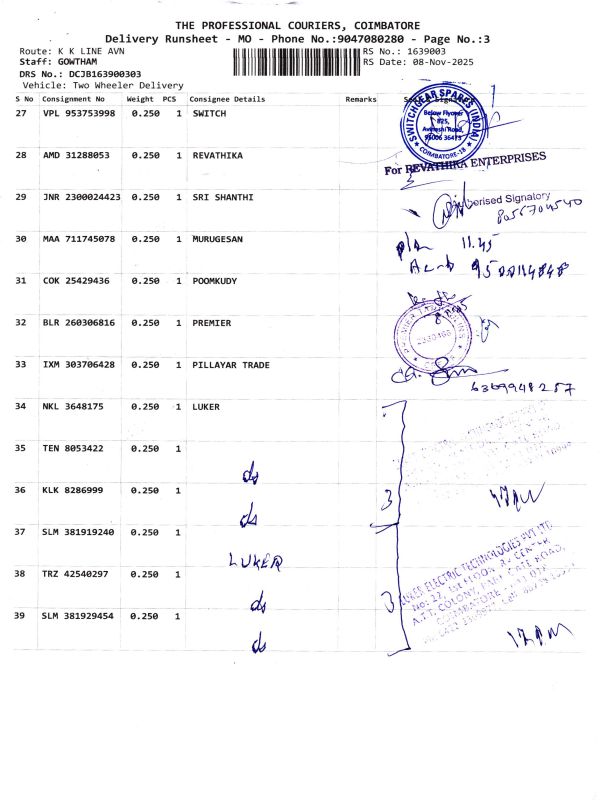 THE PROFESSIONAL COURIERS, COIMBATORE
Delivery Runsheet - MO - Phone No.:9047080280 - Page No.:3
Route: K K LINE AVN RS No.: 1639003
Staff: GOWTHAM RS Date: 08-Nov-2025
DRS No.: DCJB163900303
Vehicle: Two Wheeler Delivery
S No Consignment No Weight PCS Consignee Details Remarks
27 VPL 953753998 0.250 1 SWITCH
SWITCHGEAR SPARES (INDIA)
Below Flyover
825,
Avinashi Road,
COIMBATORE-18
28 AMD 31288053 0.250 1 REVATHIKA
For REVATHIKA ENTERPRISES
29 JNR 2300024423 0.250 1 SRI SHANTHI
Authorised Signatory
8056704540
30 MAA 711745078 0.250 1 MURUGESAN
11.45
9500114848
31 COK 25429436 0.250 1 POOMKUDY
32 BLR 260306816 0.250 1 PREMIER
33 IXM 303706428 0.250 1 PILLAYAR TRADE
6369948257
34 NKL 3648175 0.250 1 LUKER
35 TEN 8053422 0.250 1
ds
36 KLK 8286999 0.250 1
ds
3
37 SLM 381919240 0.250 1
LUKER
LUKER ELECTRIC TECHNOLOGIES PVT LTD
38 TRZ 42540297 0.250 1
ds
3
A.T.T. COLONY,
COIMBATORE
39 SLM 381929454 0.250 1
ds